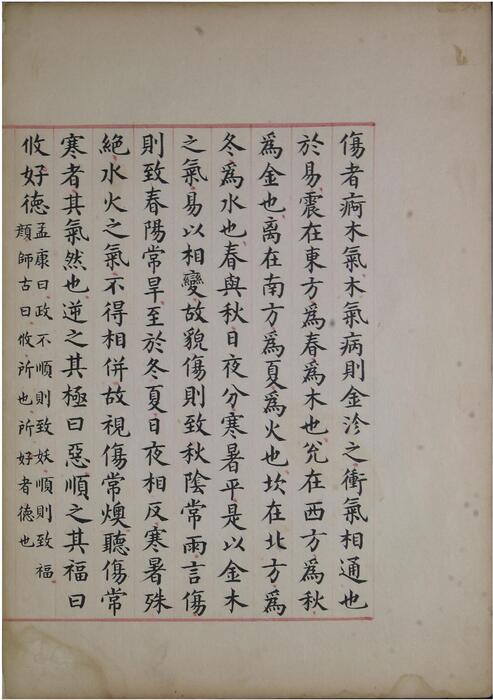 傷者病木氣木氣病則金沴之衝氣相通也
於易震在東方為春為木也兊在西方為秋
為金也离在南方為夏為火也坎在北方為
冬為水也春與秋日夜分寒暑平是以金木
之氣易以相變故貌傷則致秋陰常雨言傷
則致春陽常旱至於冬夏日夜相反寒暑殊
絕水火之氣不得相併故視傷常燠聽傷常
寒者其氣然也逆之其極曰惡順之其福曰
攸好德
孟康曰政不順則致妖順則致福
顏師古曰攸所也所好者德也